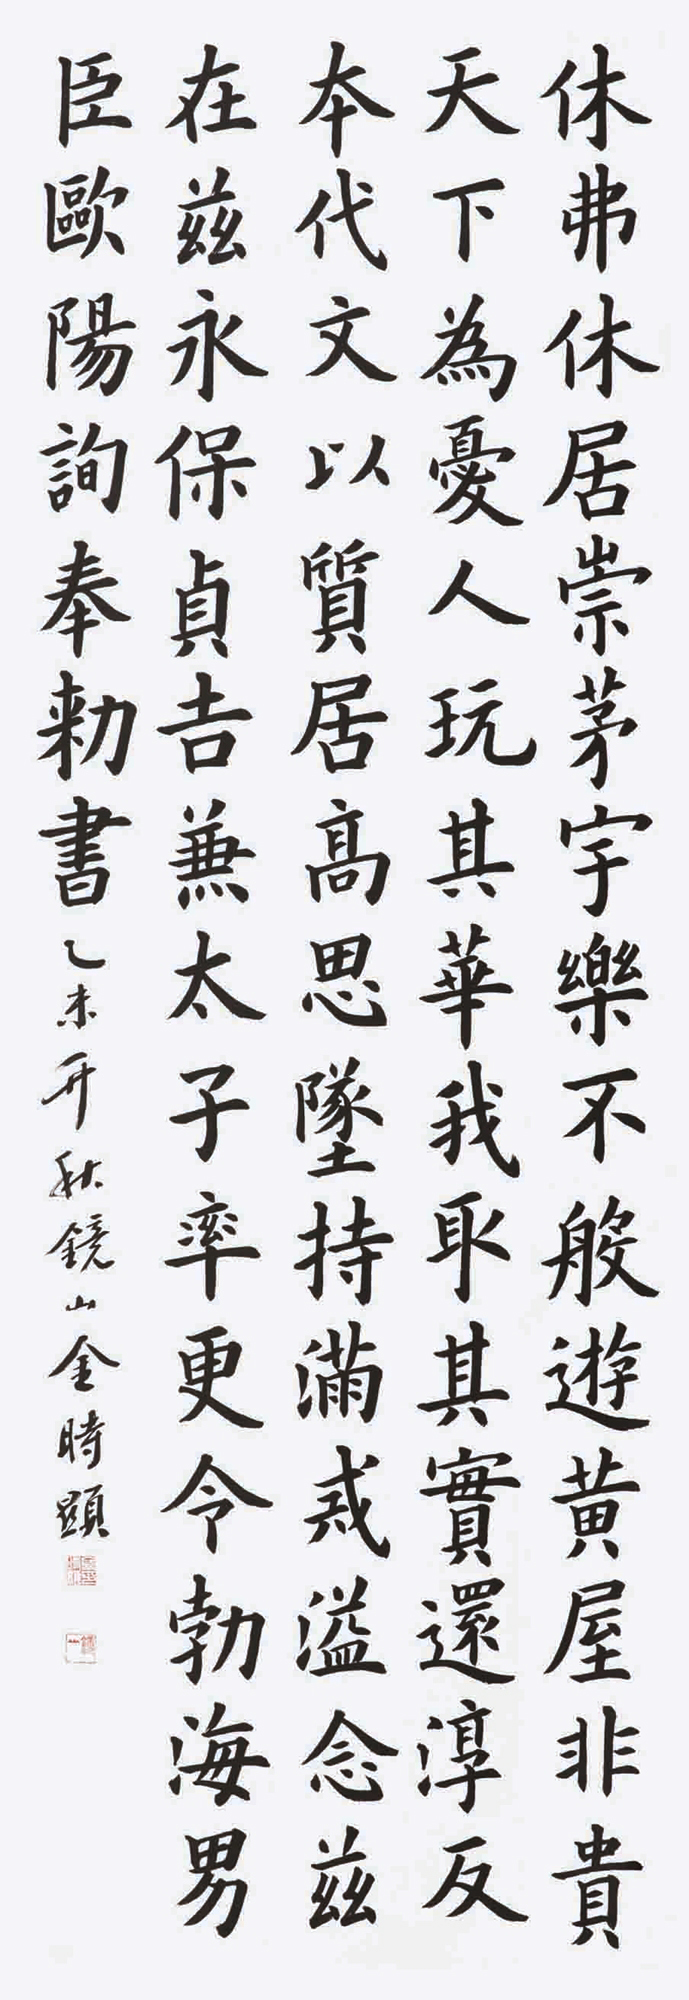 休弗休居崇茅宇樂不般遊黄屋非貴
天下為憂人玩其華我取其實還淳反
本代文以質居髙思墜持滿戒溢念兹
在兹永保貞吉兼太子率更令勃海男
臣歐陽詢奉勑書
乙未開秋鏡山金時顯